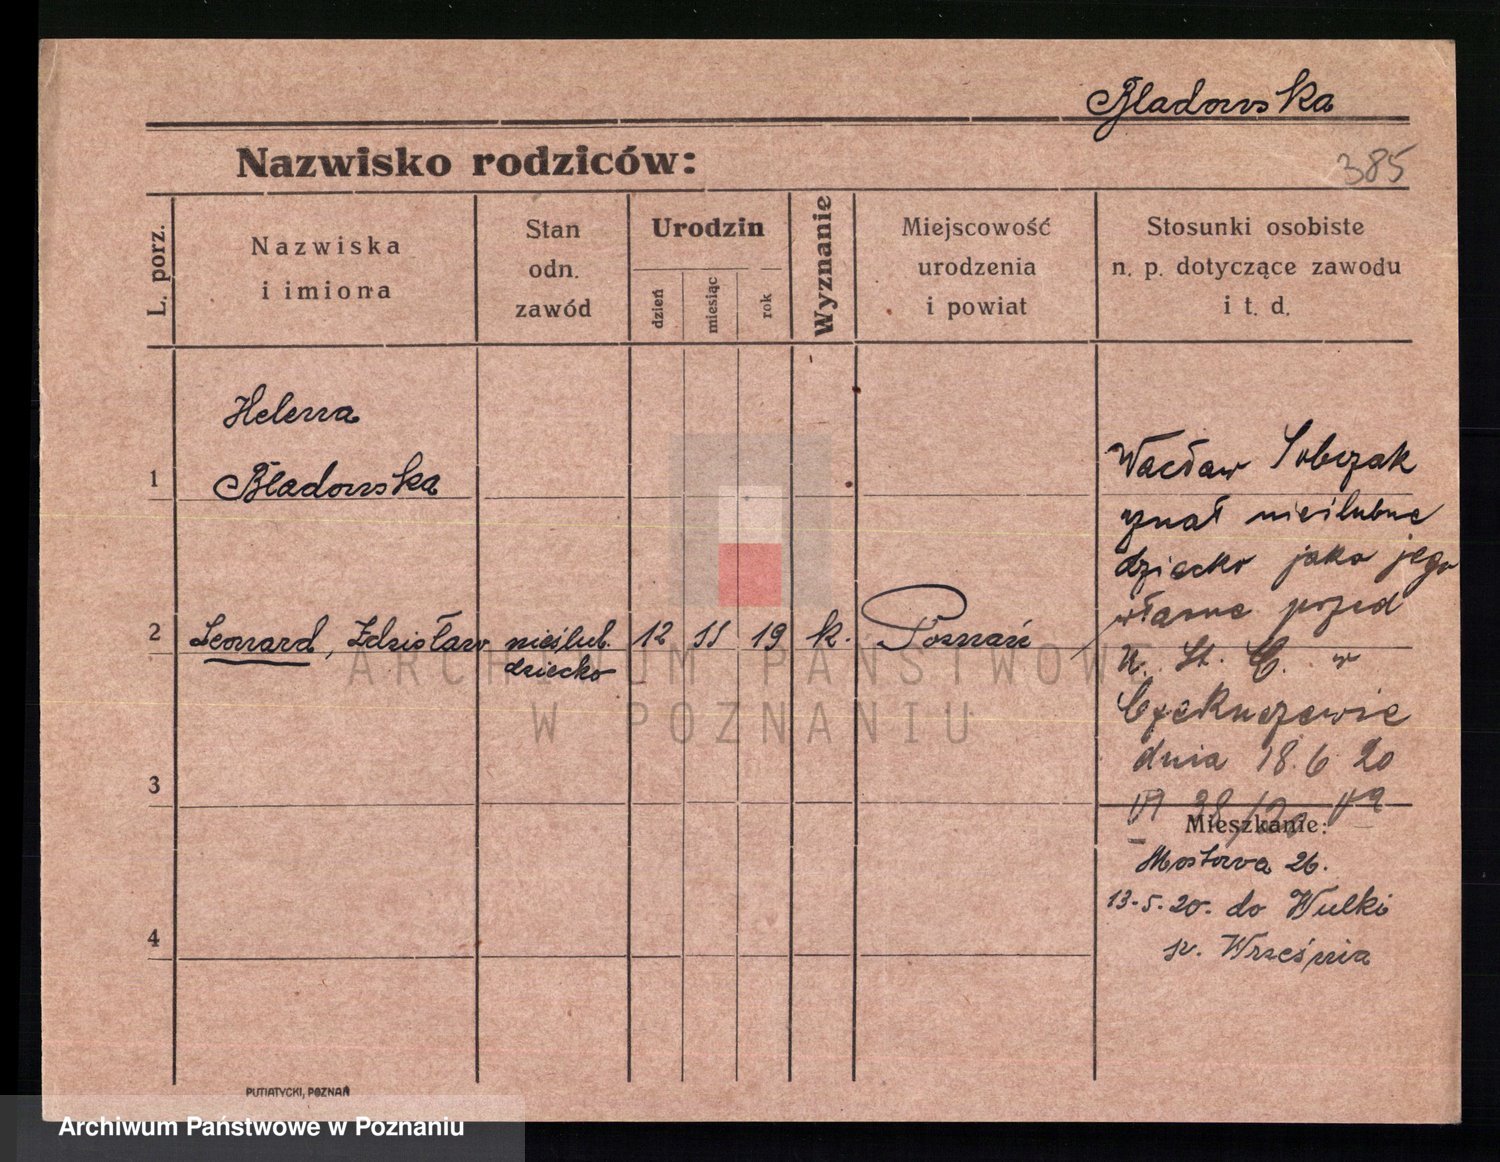 Bladowska
Nazwisko rodziców:
385
L. porz.
Nazwiska
i imiona
Stan
odn.
zawód
Urodzin
dzień
miesiąc
rok
Wyznanie
Miejscowość
urodzenia
i powiat
Stosunki osobiste
n. p. dotyczące zawodu
i t. d.
1
Helena
Bladowska
2
Leonard, Zdzisław
nieślub.
dziecko
12
11
19
k.
Poznań
Wacław Sobczak
uznał nieślubne
dziecko jako jego
własne przed
U. St. C. w
dnia 18.6 20
3
Mieszkanie:
Mostowa 26.
13-5.20. do Wulki
p. Września
4
ARCHIWUM PAŃSTWOWE
W POZNANIU
PUTIATYCKI, POZNAŃ
Archiwum Państwowe w Poznaniu